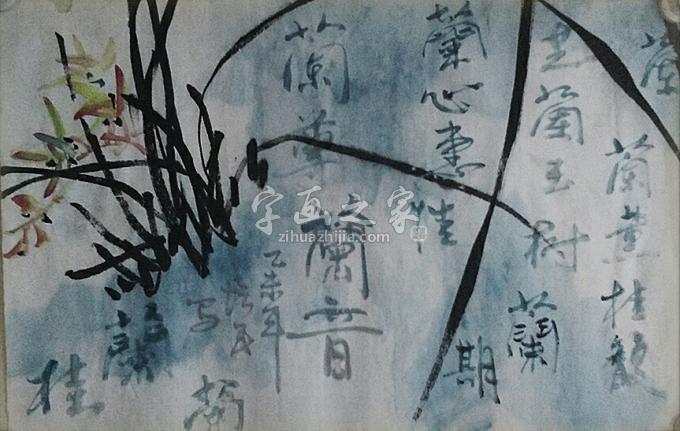 蘭
蘭薰桂馥
芝蘭玉樹
蘭
期
蘭心蕙性
蘭
蘭音
乙未年
写
蘭
桂
字画之家
zihuazhijia.com